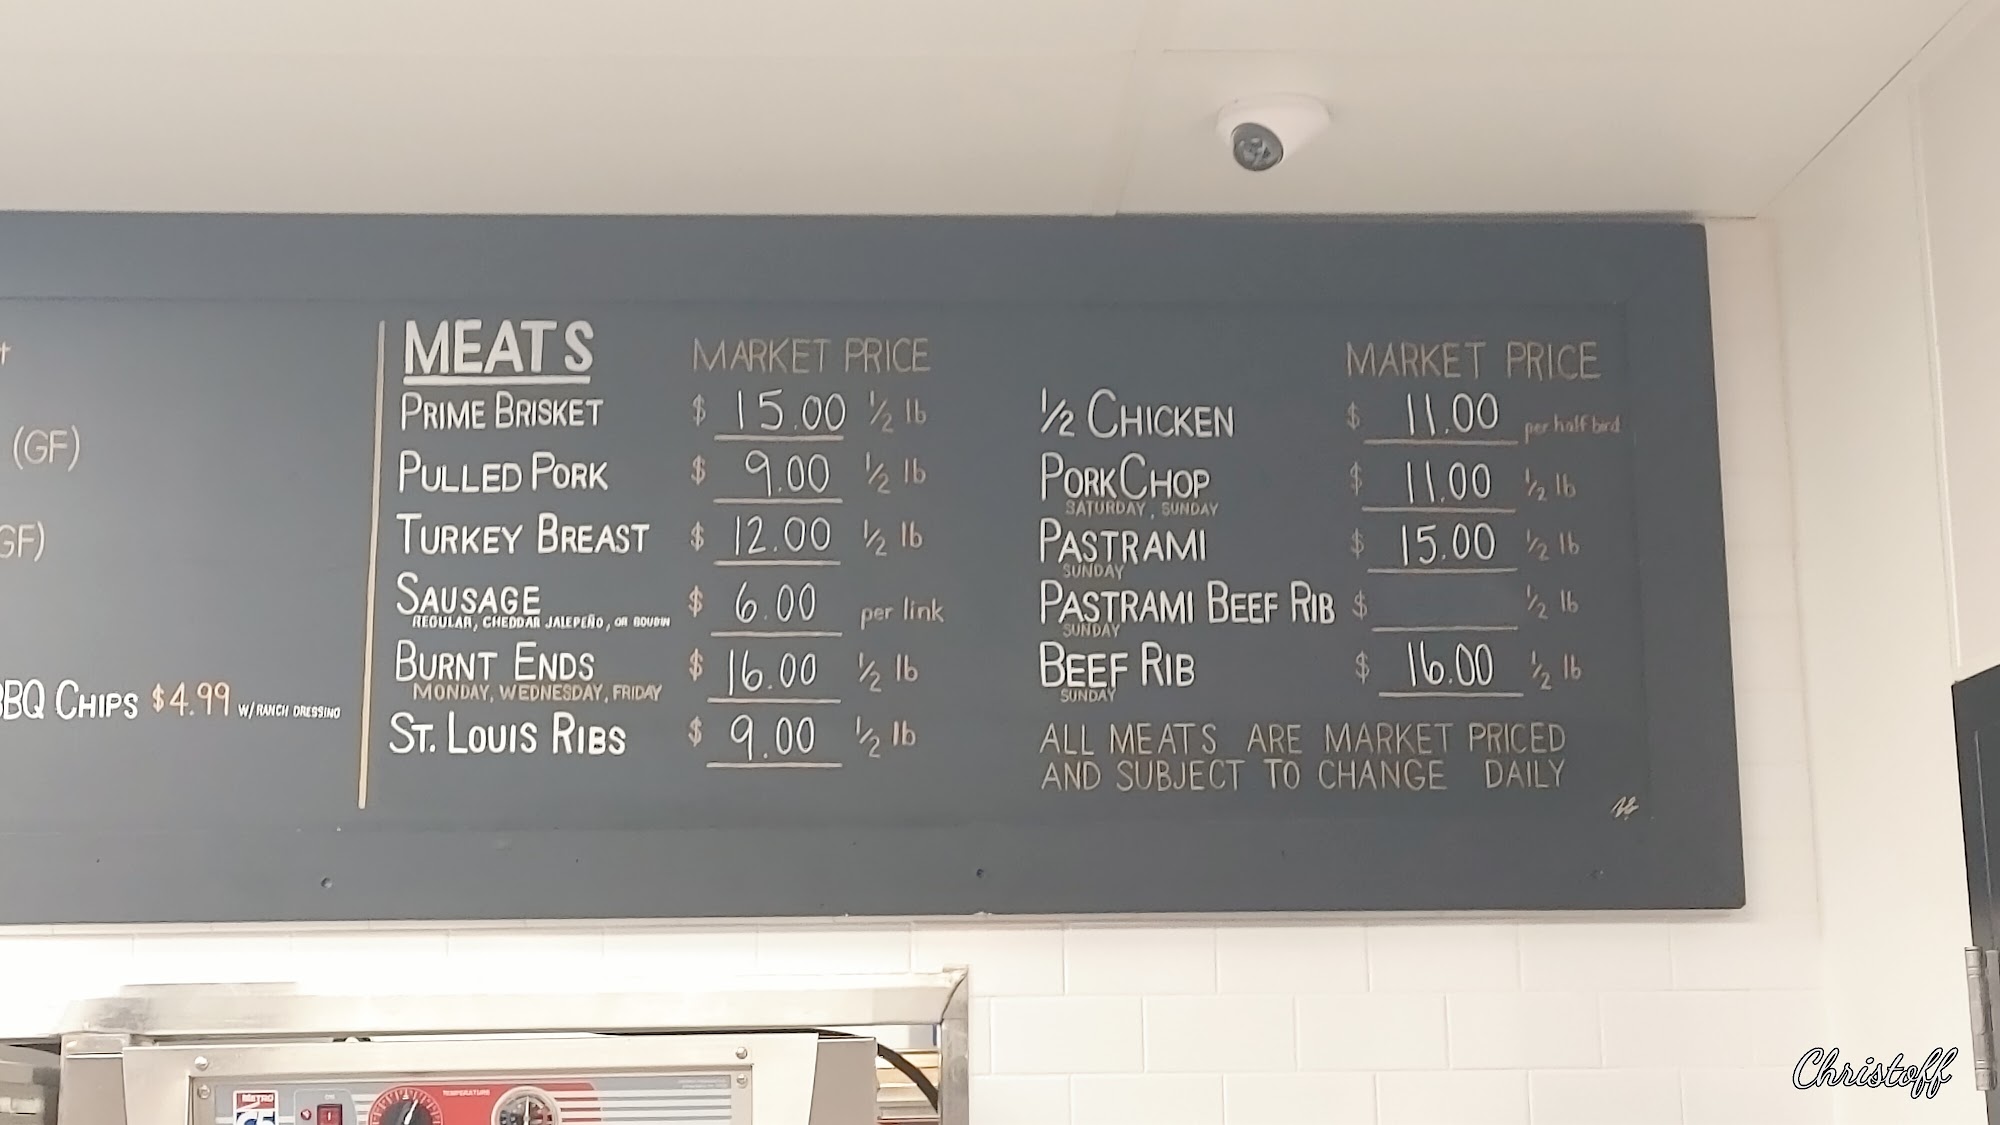 (GF)
GF)
BBQ CHIPS $4.99 W/RANCH DRESSING
MEATS MARKET PRICE
PRIME BRISKET $ 15.00 1/2 lb
PULLED PORK $ 9.00 1/2 lb
TURKEY BREAST $ 12.00 1/2 lb
SAUSAGE $ 6.00 per link
REGULAR, CHEDDAR JALEPEÑO, OR BOUDIN
BURNT ENDS $ 16.00 1/2 lb
MONDAY, WEDNESDAY, FRIDAY
ST. LOUIS RIBS $ 9.00 1/2 lb
MARKET PRICE
1/2 CHICKEN $ 11.00 per half bird
PORK CHOP $ 11.00 1/2 lb
SATURDAY, SUNDAY
PASTRAMI $ 15.00 1/2 lb
SUNDAY
PASTRAMI BEEF RIB $ 1/2 lb
SUNDAY
BEEF RIB $ 16.00 1/2 lb
SUNDAY
ALL MEATS ARE MARKET PRICED
AND SUBJECT TO CHANGE DAILY
METRO
TEMPERATURE
Christoff